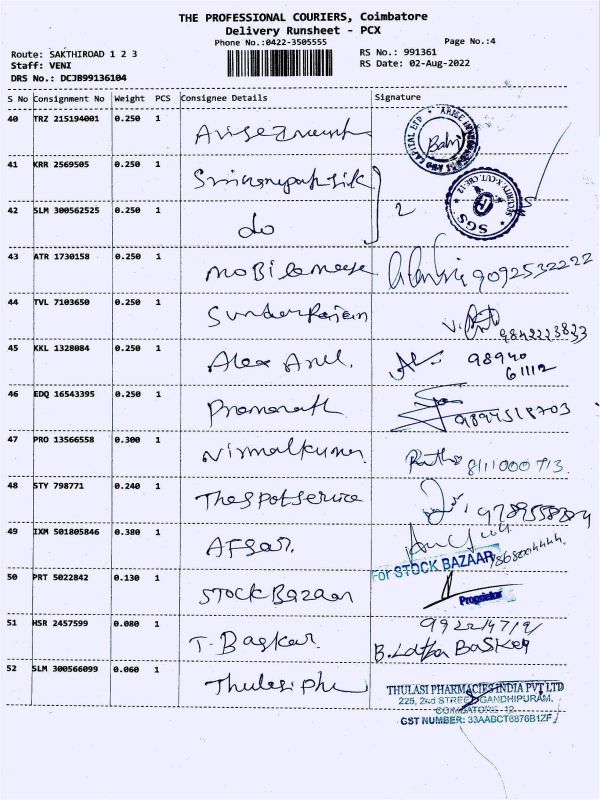 THE PROFESSIONAL COURIERS, Coimbatore
Delivery Runsheet - PCX
Phone No.:0422-3505555 Page No.:4
Route: SAKTHIROAD 1 2 3 RS No.: 991361
Staff: VENI RS Date: 02-Aug-2022
DRS No.: DCJB99136104
S No Consignment No Weight PCS Consignee Details Signature
40 TRZ 215194001 0.250 1
Balu
41 KRR 2569505 0.250 1
SGS
42 SLM 300562525 0.250 1 do 2
43 ATR 1730158 0.250 1 9092532222
44 TVL 7103650 0.250 1 Sunder Rajan
9842223823
45 KKL 1328084 0.250 1 Alex Arul. 98940
61112
46 EDQ 16543395 0.250 1 Pramanath 9894518703
47 PRO 13566558 0.300 1 Nirmalkumar 8111000713
48 STY 798771 0.240 1 The spot service
49 IXM 501805846 0.380 1 AFSar.
For STOCK BAZAAR
50 PRT 5022842 0.130 1 STOCK Bazaar
Proprietor
51 HSR 2457599 0.080 1 T. Baskar.
B. Latha Basker
52 SLM 300566099 0.060 1 Thulasi Pha
THULASI PHARMACIES INDIA PVT LTD
225, 2nd STREET, GANDHIPURAM,
COIMBATORE - 12
GST NUMBER: 33AABCT6876B1ZF